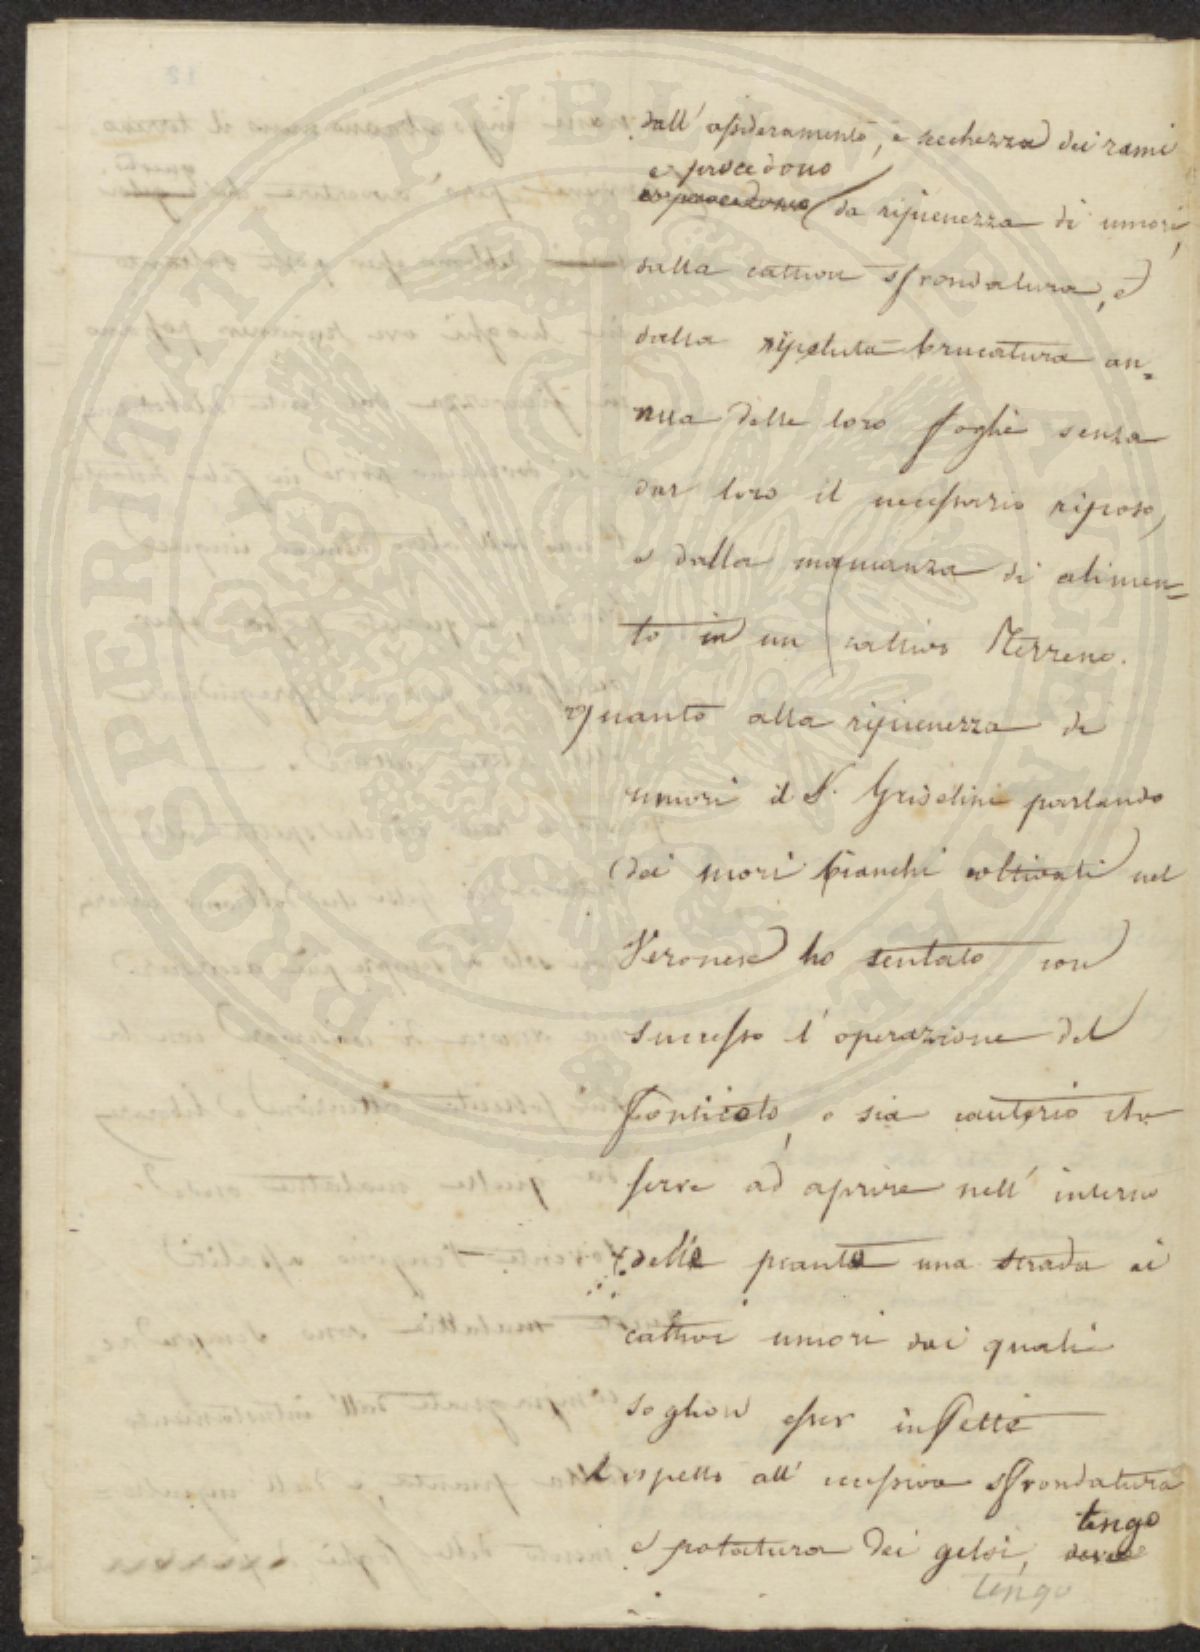 dall' assideramento, e secchezza dei rami
e procedono
da ripienezza di umori,
dalla cattiva sfrondatura, e
dalla ripetuta brucatura an=
nua delle loro foglie senza
dar loro il necessario riposo,
e dalla mancanza di alimen=
to in un cattivo Terreno.
Quanto alla ripienezza di
umori il S. Griselini parlando
dei mori bianchi coltivati nel
Veronese ho tentato con
successo l' operazione del
Fonticolo, o sia cauterio che
serve ad aprire nell' interno
delle piante una strada ai
cattivi umori dai quali
soglion esser infette
Rispetto all' eccessiva sfrondatura
tengo
e potatura dei gelsi,
tengo
PROSPERITATI PVBLICAE AVGENDAE